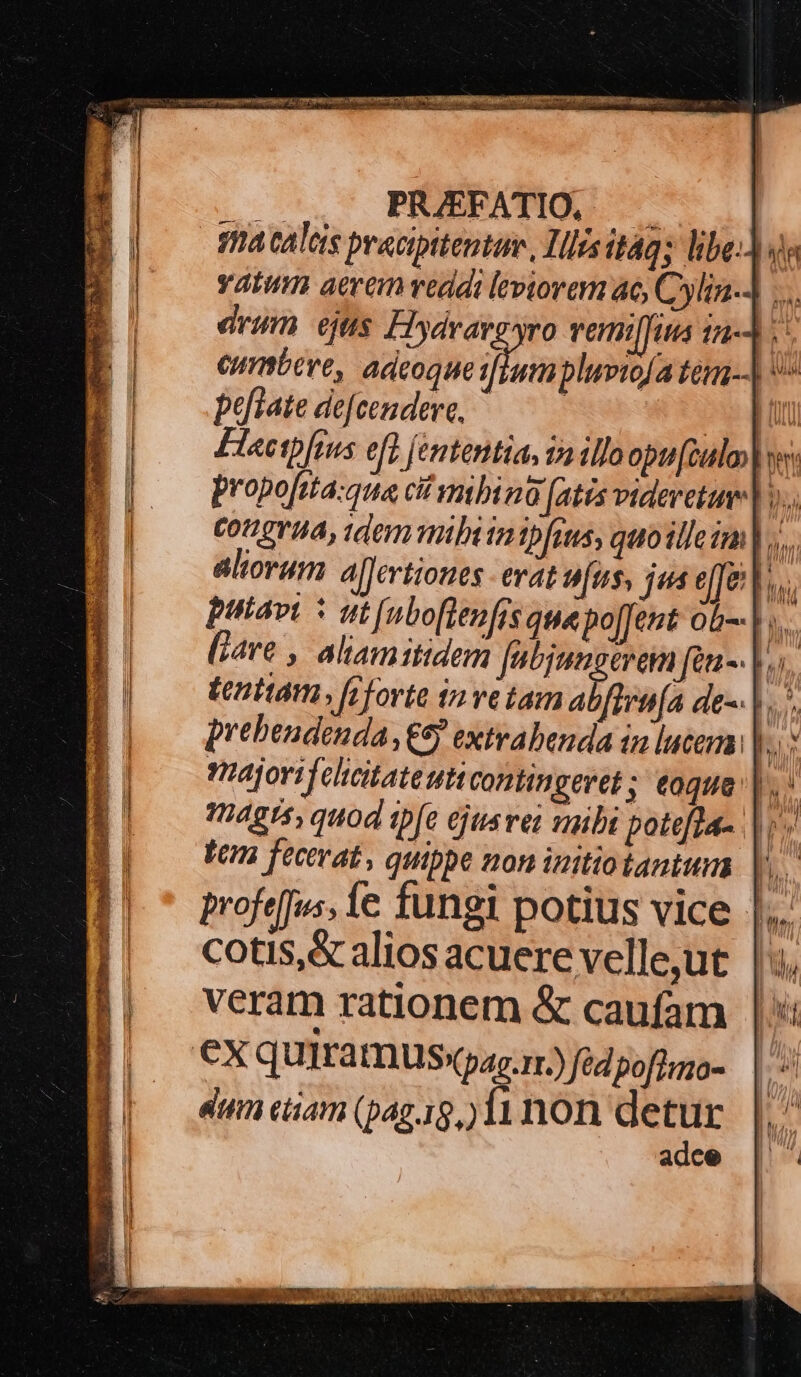 PRÆFATIO.
ma calcis præcipitentur, Illis itaq; libe-
ratum aerem reddi leviorem ac, Cylin-
drum ejus Hydrargyro remiſſius in-
cumbere, adeoque iſtum pluvioſa tem-
peſtate deſcendere.
Hæc ipſius eſt ſententia, in illo opuſculo
propoſita: quæ cũ mihi nõ ſatis videretur
congrua, idem mihi in ipſius, quo ille in
aliorum aſſertiones erat uſus, jus eſſe
putavi : ut ſuboſtenſis quæ poſſent ob-
ſtare , aliam itidem ſubjungerem ſen-
tentiam, ſi forte in re tam abſtruſa de-
prehendenda, & extrahenda in lucem
majori felicitate uti contingeret ; eoque
magis, quod ipſe ejus rei mihi poteſta-
tem fecerat, quippe non initio tantum
profeſſus, ſe fungi potius vice
cotis, & alios acuere velle, ut
veram rationem & cauſam
ex quiramus (pag. 11.) ſed poſtmo-
dum etiam (pag. 18,) ſi non detur
adce